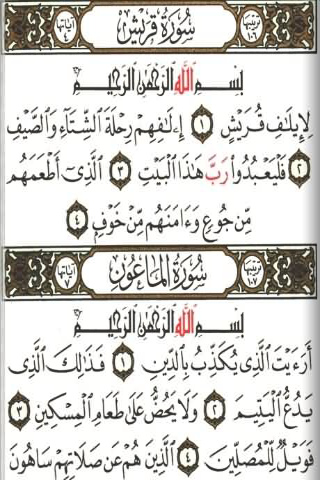 ترتيبها ١٠٦ سُورَةُ قُرَيْشٍ آياتها ٤
بِسْمِ ٱللَّهِ ٱلرَّحْمَٰنِ ٱلرَّحِيمِ
لِإِيلَٰفِ قُرَيْشٍ ١ إِۦلَٰفِهِمْ رِحْلَةَ ٱلشِّتَآءِ وَٱلصَّيْفِ
٢ فَلْيَعْبُدُوا۟ رَبَّ هَٰذَا ٱلْبَيْتِ ٣ ٱلَّذِىٓ أَطْعَمَهُم
مِّن جُوعٍ وَءَامَنَهُم مِّنْ خَوْفٍۭ ٤
ترتيبها ١٠٧ سُورَةُ المَاعُونِ آياتها ٧
بِسْمِ ٱللَّهِ ٱلرَّحْمَٰنِ ٱلرَّحِيمِ
أَرَءَيْتَ ٱلَّذِى يُكَذِّبُ بِٱلدِّينِ ١ فَذَٰلِكَ ٱلَّذِى
يَدُعُّ ٱلْيَتِيمَ ٢ وَلَا يَحُضُّ عَلَىٰ طَعَامِ ٱلْمِسْكِينِ ٣
فَوَيْلٌ لِّلْمُصَلِّينَ ٤ ٱلَّذِينَ هُمْ عَن صَلَاتِهِمْ سَاهُونَ